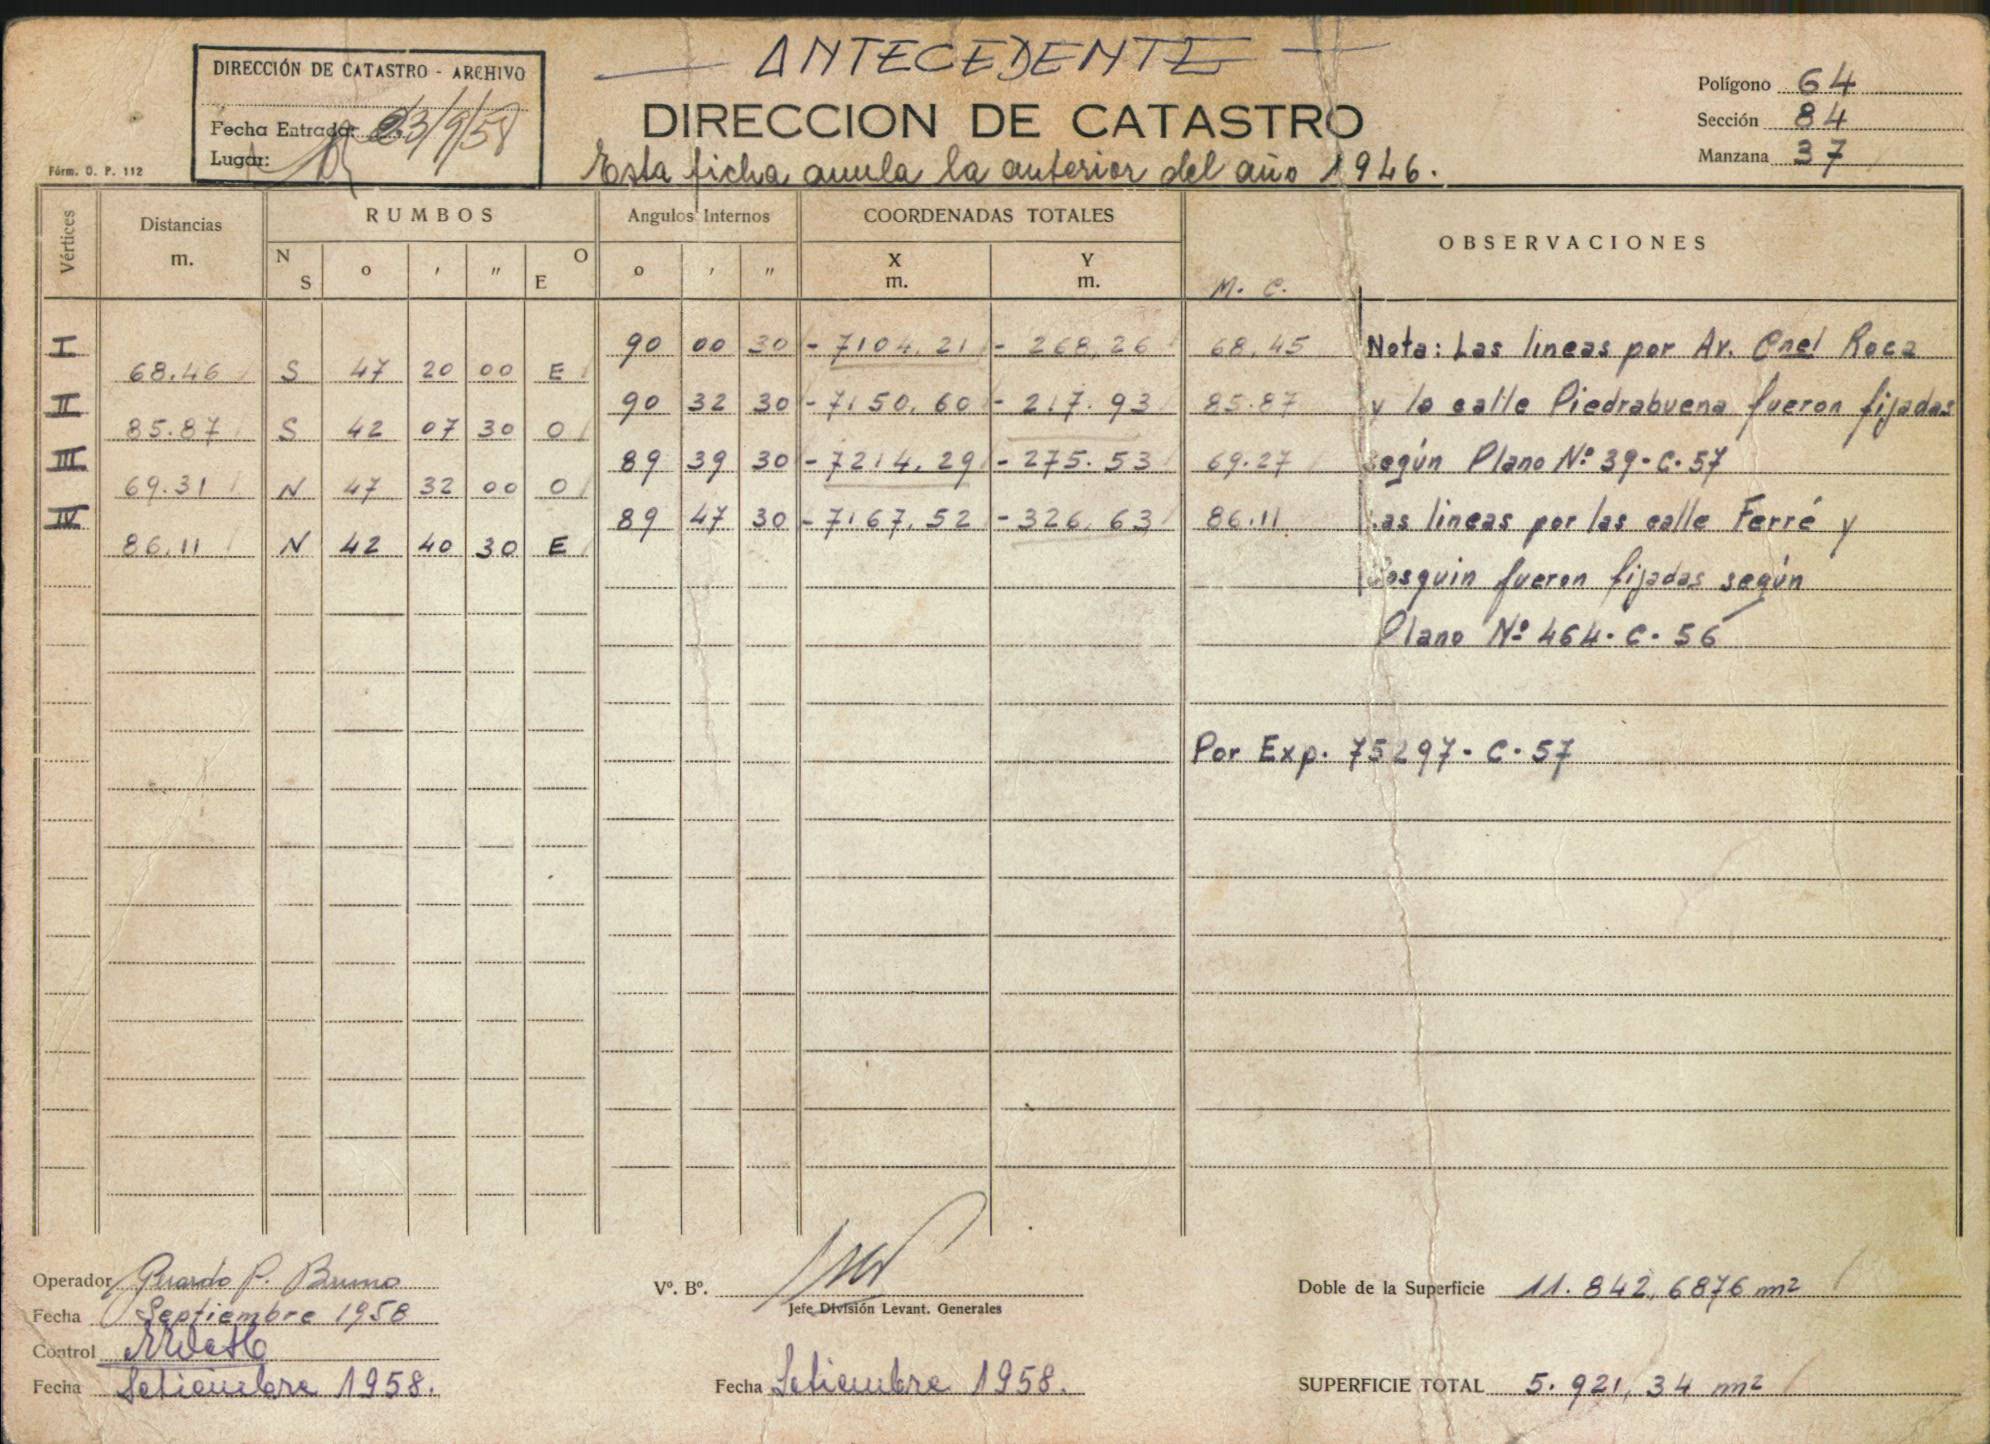 ANTECEDENTE
DIRECCIÓN DE CATASTRO - ARCHIVO
Fecha Entrada: 23/9/58
Lugar:
Fórm. O. P. 112
DIRECCION DE CATASTRO
Esta ficha anula la anterior del año 1946.
Polígono 64
Sección 84
Manzana 37
Vértices Distancias m. RUMBOS Angulos Internos COORDENADAS TOTALES OBSERVACIONES
N S o ' " O E o ' " X m. Y m. M. C.
I 90 00 30 - 7104,21 - 268,26 68.45 Nota: Las lineas por Av. Cnel Roca
68.46 S 47 20 00 E
II 90 32 30 - 7150,60 - 217.93 85.87 y la calle Piedrabuena fueron fijadas
85.87 S 42 07 30 O
III 89 39 30 - 7214.29 - 275.53 69.27 según Plano Nº 39-C-57
69.31 N 47 32 00 O
IV 89 47 30 - 7167,52 - 326,63 86.11 Las lineas por las calle Ferré y
86.11 N 42 40 30 E
Cosquin fueron fijadas según
Plano Nº 464-C-56
Por Exp. 75297-C-57
Operador Gerardo P. Bruno
Fecha Septiembre 1958
Control
Fecha Setiembre 1958.
Vº. Bº.
Jefe División Levant. Generales
Fecha Setiembre 1958.
Doble de la Superficie 11.842,6876 m2
SUPERFICIE TOTAL 5.921,34 m2